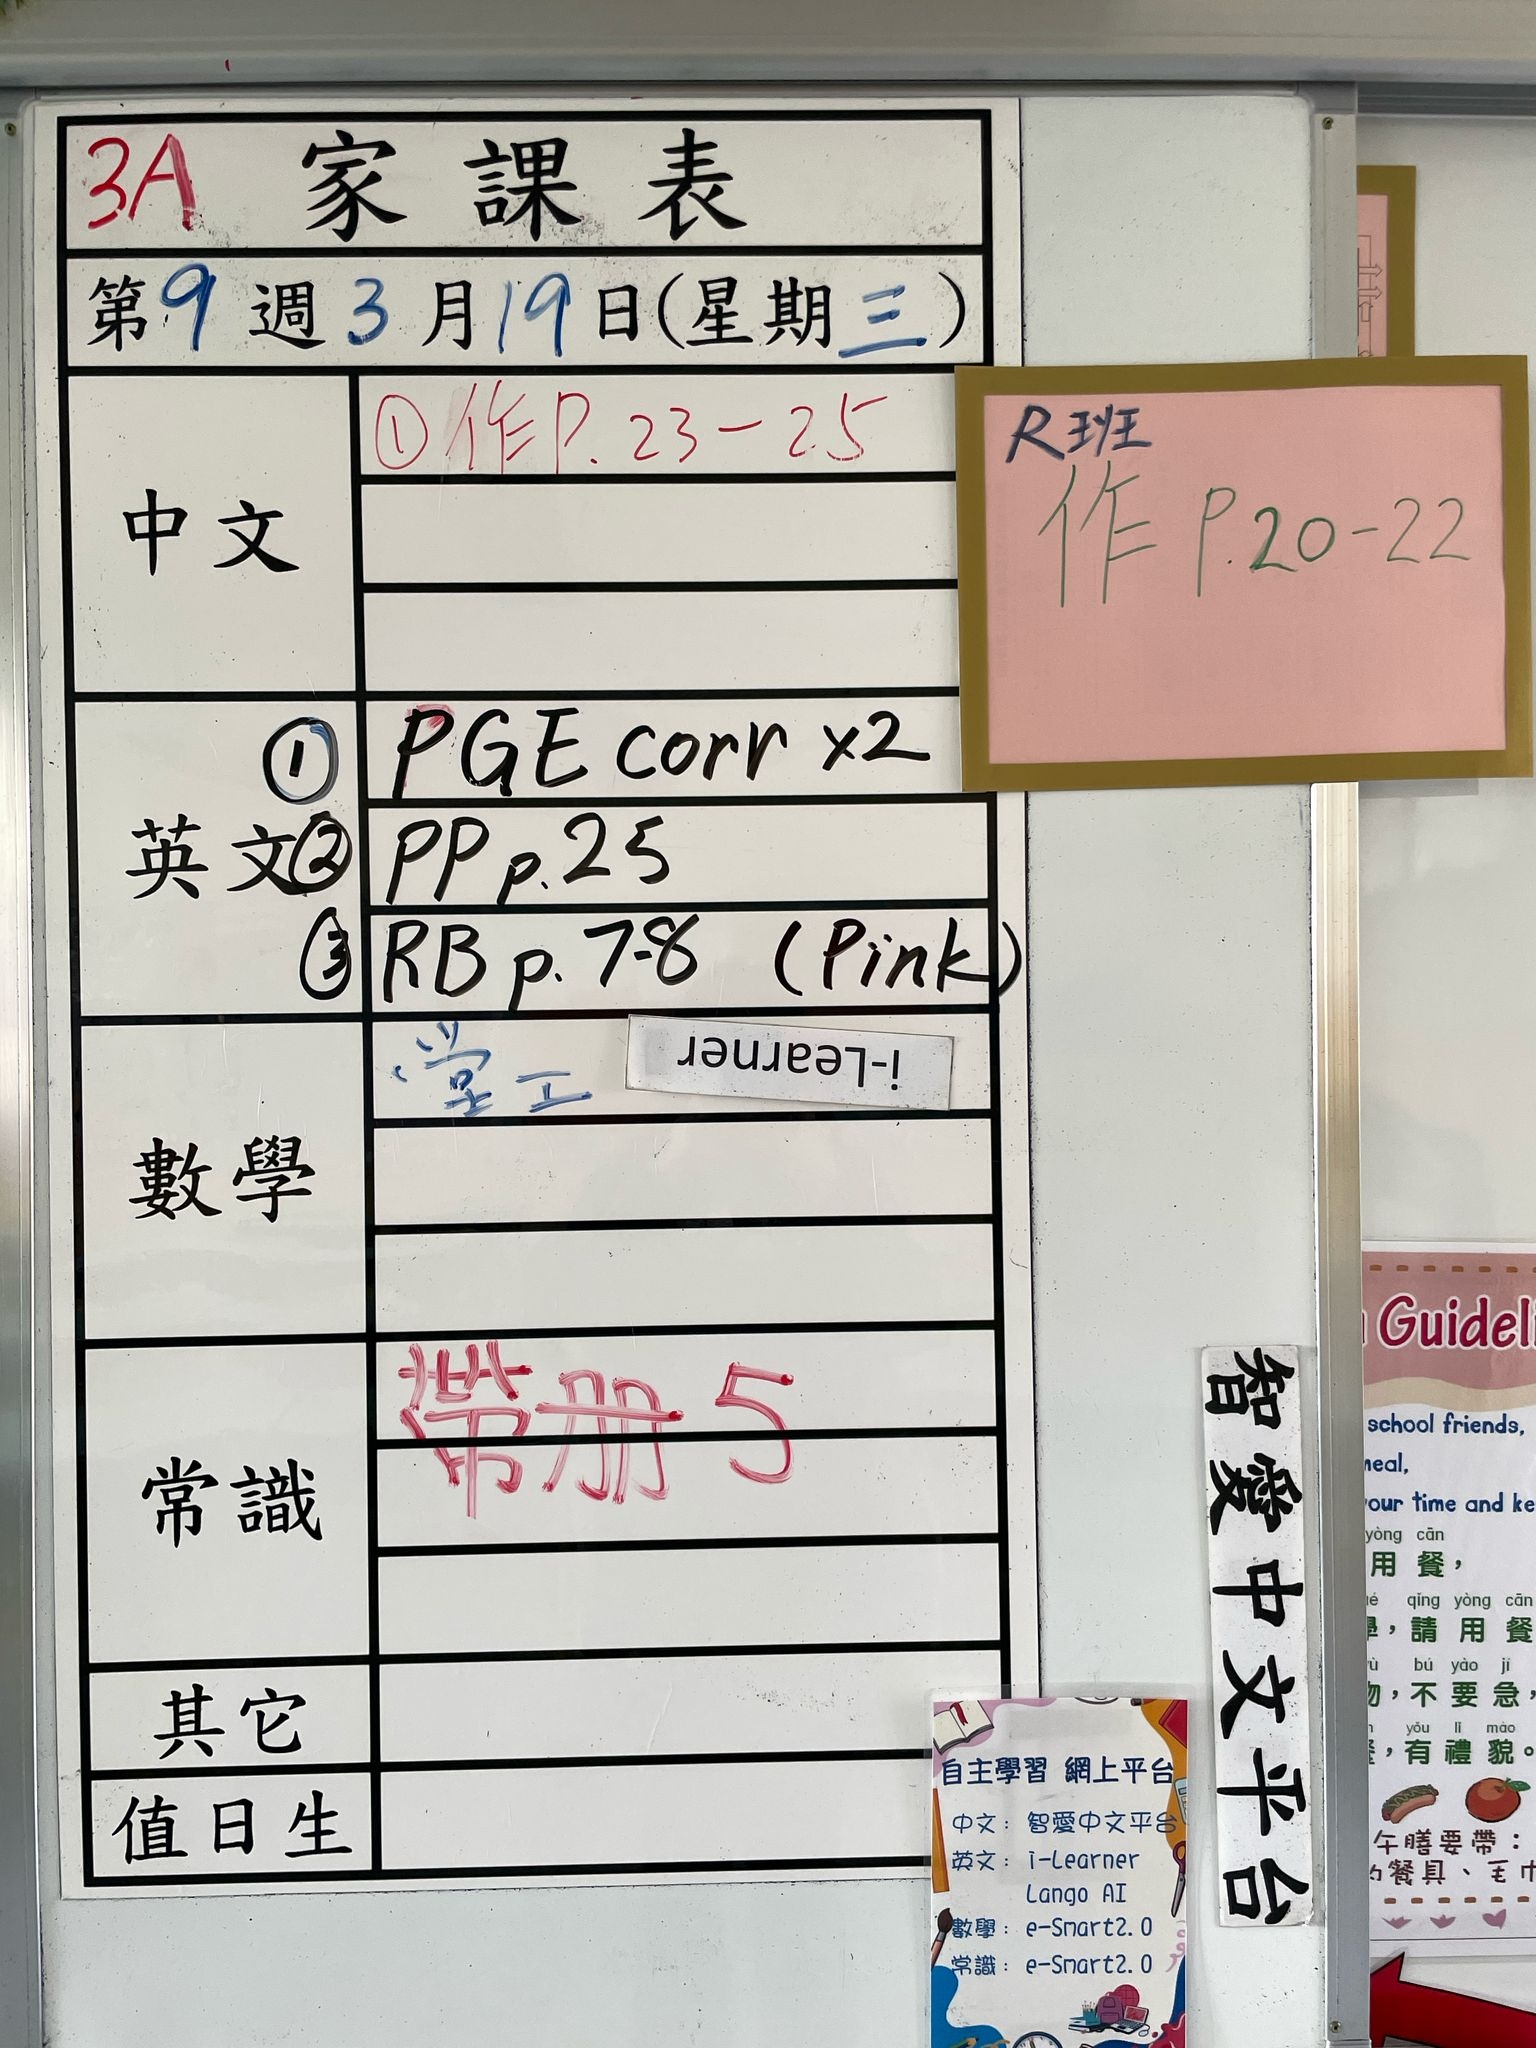 3A 家課表
第9週3月19日(星期三)
中文
①作P.23-25
R班
作 P.20-22
英文
① PGE corr x2
② PP p.25
③ RB p.7-8 (Pink)
數學
i-Learner
常識
帶册5
其它
值日生
智愛中文平台
自主學習 網上平台
中文：智愛中文平台
英文：i-Learner
Lango AI
數學：e-Smart2.0
常識：e-Smart2.0
Guideli
school friends,
meal,
your time and ke
yòng cān
用餐，
qǐng yòng cān
，請用餐
bú yào jí
，不要急，
yǒu lǐ mào
，有禮貌。
午膳要帶：
餐具、毛巾